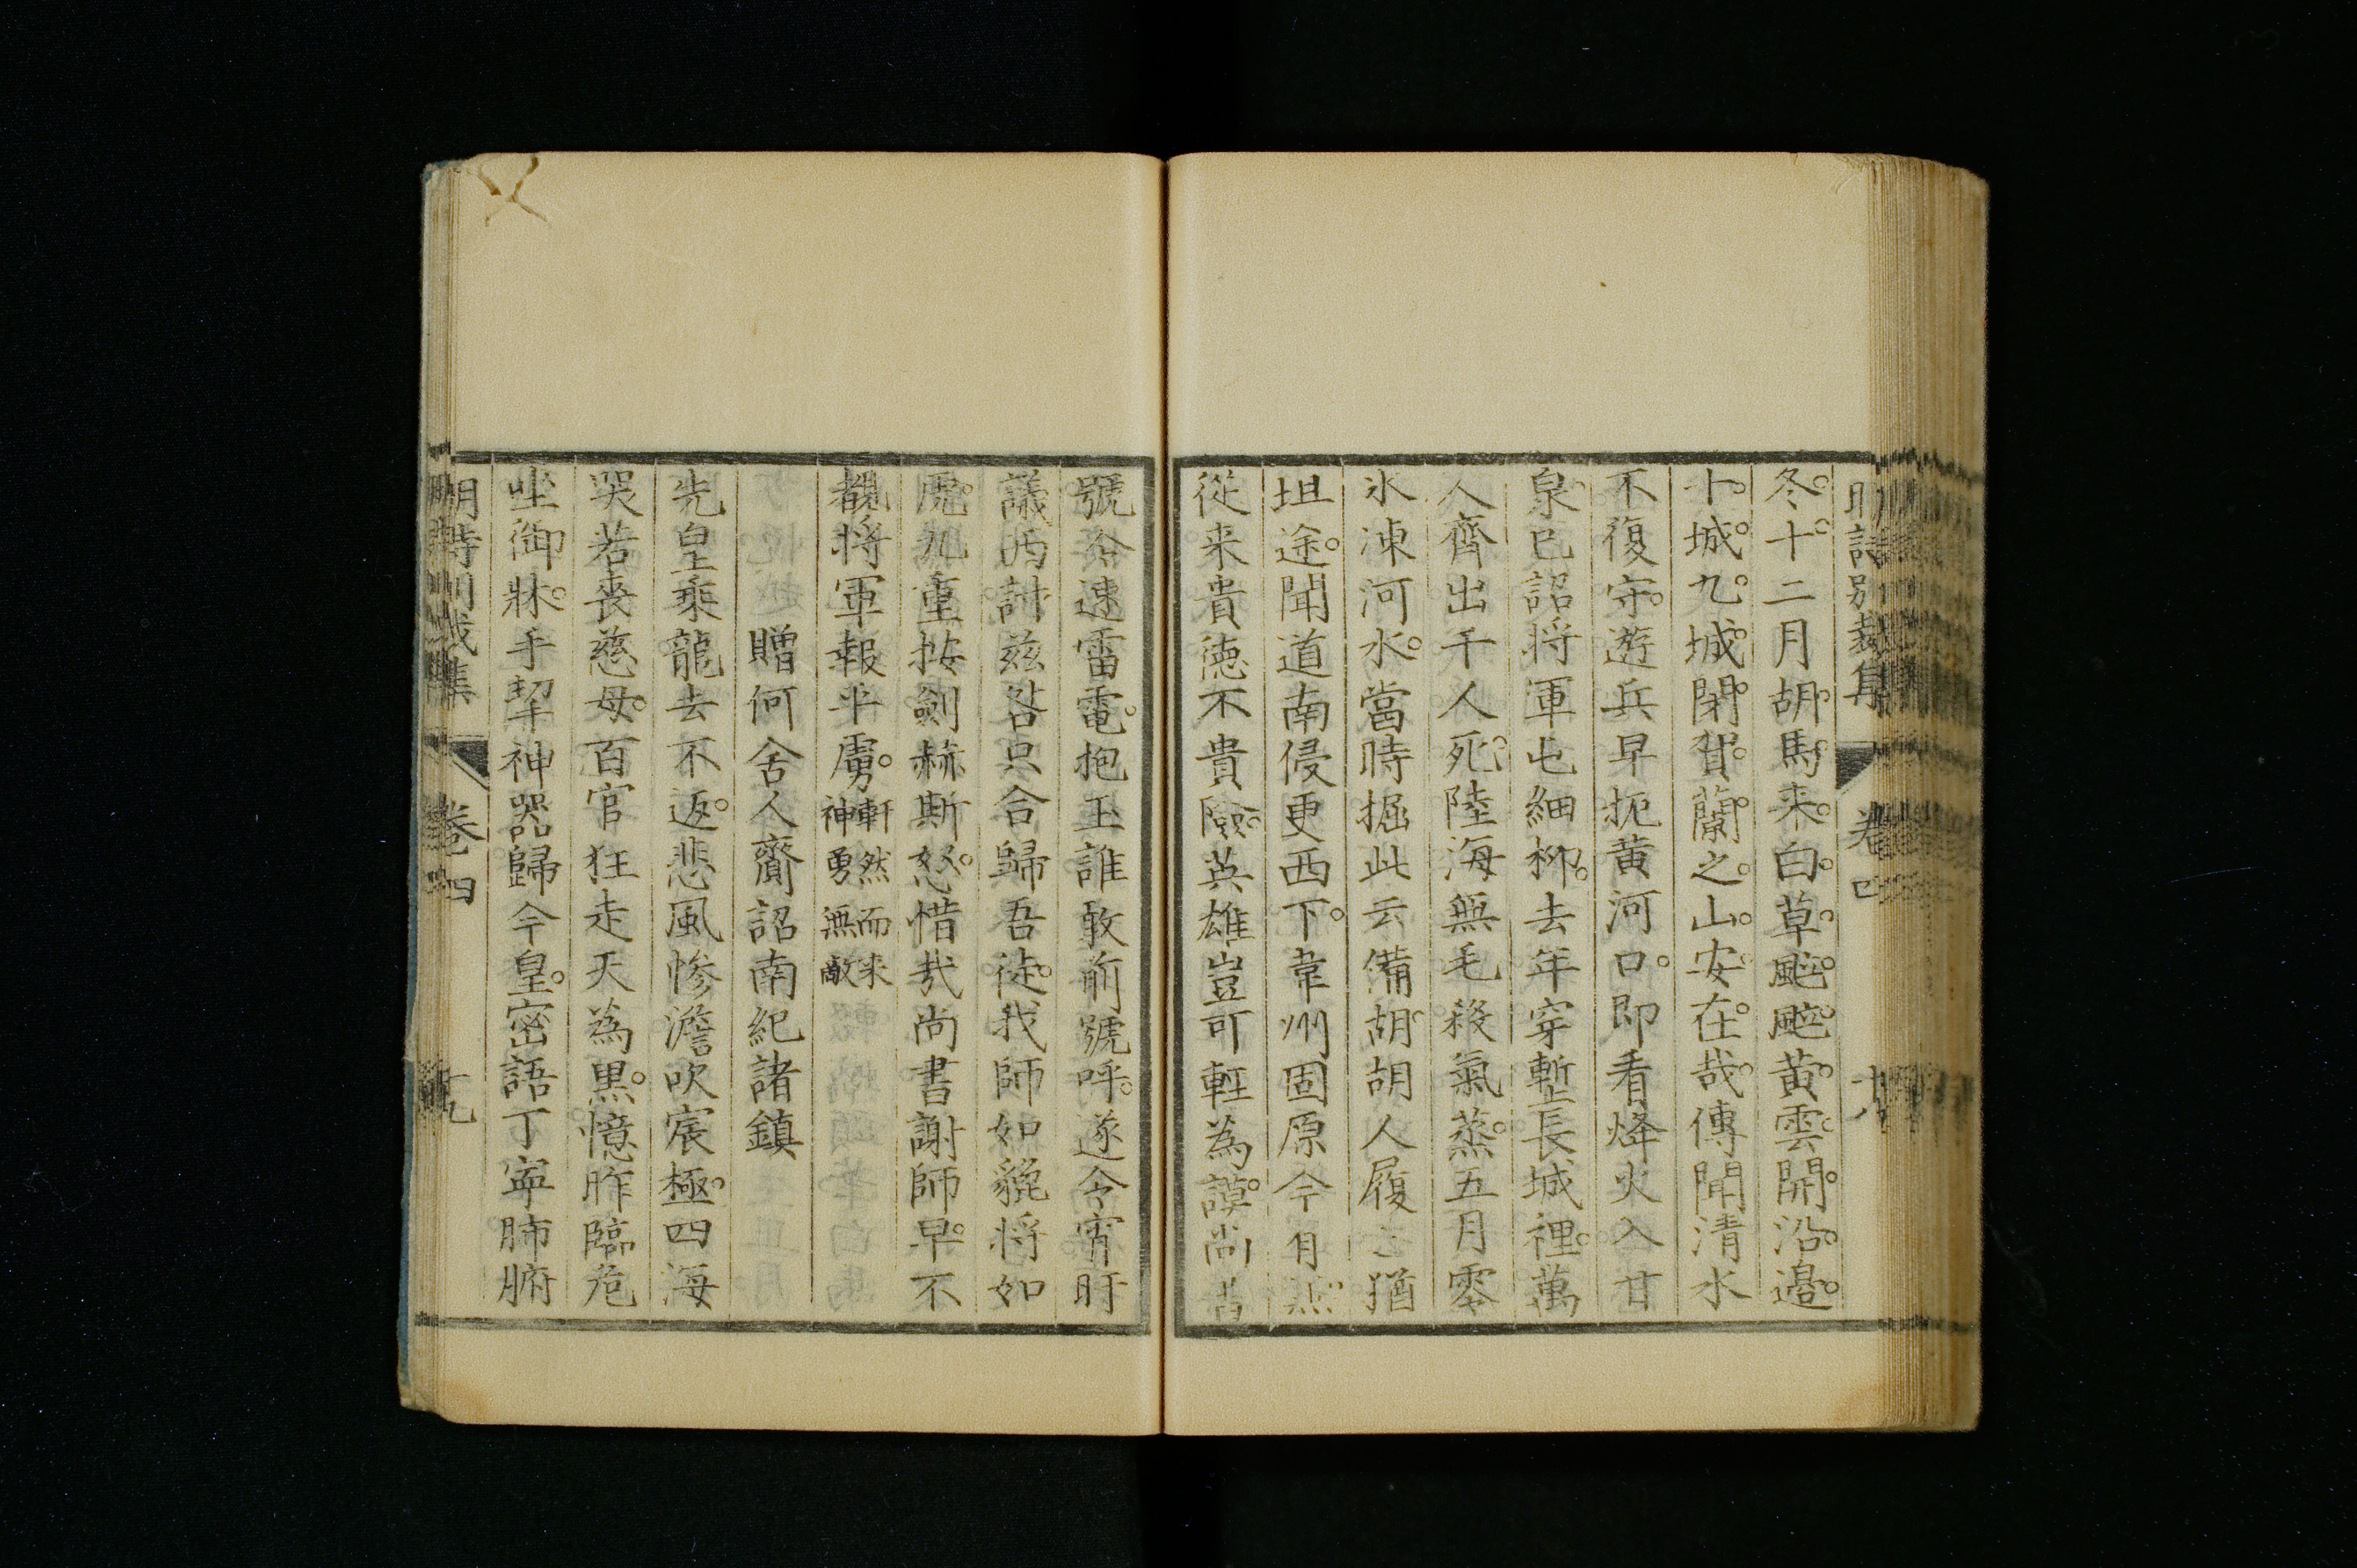 明詩別裁集 卷四 十八
冬。十。二月胡。馬。来。白。草。颾。颾。黃。雲。開。沿。邊。
十。城。九。城。閉。賀。蘭。之。山。安。在。哉。傳聞清水
不復守。遊兵早扼黃河口。即看烽火入甘
泉。已詔将軍屯細栁。去年穿塹長城裡。萬
人齊出千人死。陸海無毛殺氣蒸。五月零
氷凍河水。當時掘此云備胡。胡人履之猶
坦途。聞道南侵更西下。韋州固原今有無。
從来貴德不貴險。英雄豈可輕為謨。尚書
號令速雷電。抱玉誰敢前號呼。遂令宵旰
議西討。茲咎只合歸吾徒。我師如貔将如
虎。九重按劍赫斯怒。惜哉尚書謝師早。不
覩将軍報平虜。軒然而来
神勇無敵
贈何舍人齎詔南紀諸鎮
先皇乘龍去不返。悲風慘澹吹宸極。四海
哭若喪慈母。百官狂走天為黑。憶昨臨危
坐御牀。手挈神器歸今皇。密語丁寧肺腑
明詩別裁集 卷四 十九